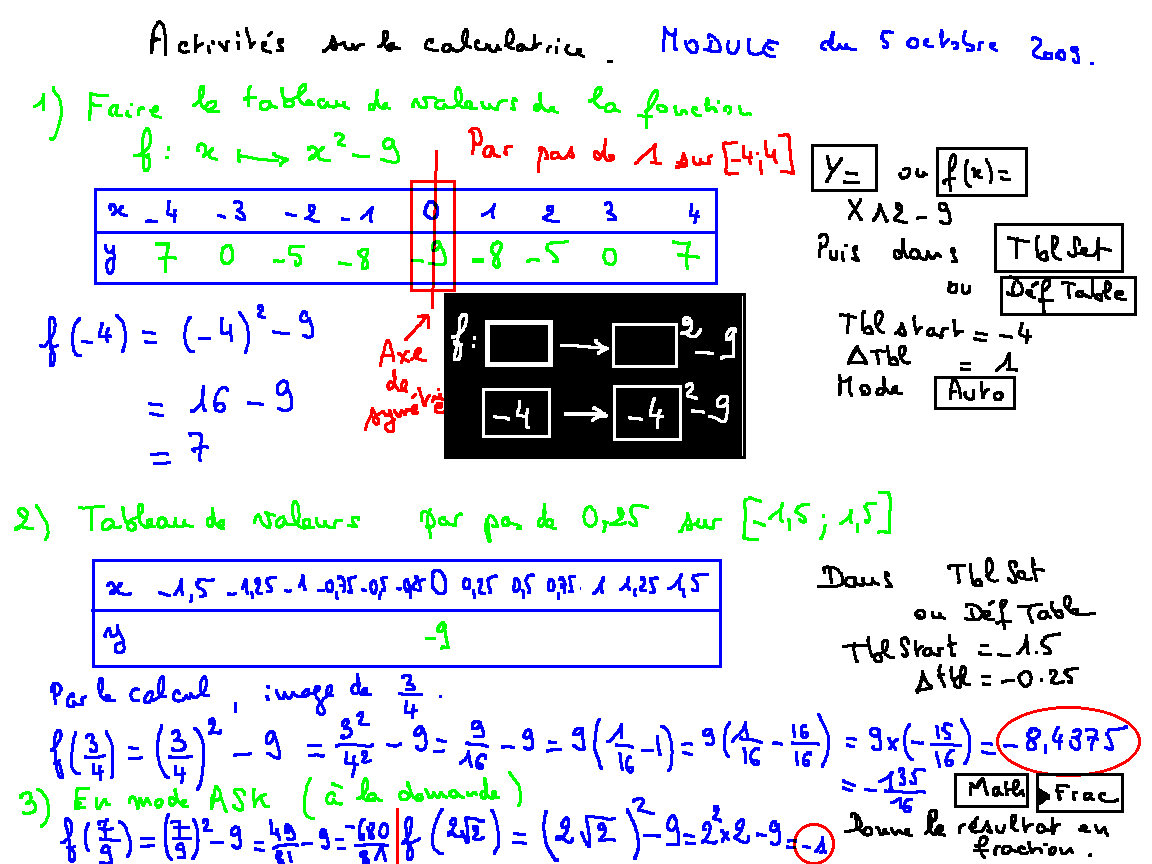 Activités sur la calculatrice. MODULE du 5 octobre 2009.
1) Faire le tableau de valeurs de la fonction
f: x ⟼ x² - 9 Par pas de 1 sur [-4;4]
x -4 -3 -2 -1 0 1 2 3 4
y 7 0 -5 -8 -9 -8 -5 0 7
Y= ou f(x)=
X^2-9
Puis dans Tbl Set
ou Déf Table
Tbl start = -4
ΔTbl = 1
Mode Auto
f(-4) = (-4)² - 9
= 16 - 9
= 7
Axe
de
symétrie
f: □ → □² - 9
-4 → -4² - 9
2) Tableau de valeurs par pas de 0,25 sur [-1,5 ; 1,5]
x -1,5 -1,25 -1 -0,75 -0,5 -0,25 0 0,25 0,5 0,75 1 1,25 1,5
y -9
Dans Tbl Set
ou Déf Table
Tbl Start = -1.5
Δtbl = -0.25
Par le calcul, image de 3/4.
f(3/4) = (3/4)² - 9 = 3²/4² - 9 = 9/16 - 9 = 9(1/16 - 1) = 9(1/16 - 16/16) = 9×(-15/16) = -8,4375
= -135/16
Math ▶Frac
Donne le résultat en
fraction.
3) En mode ASK (à la demande)
f(7/9) = (7/9)² - 9 = 49/81 - 9 = -680/81
f(2√2) = (2√2)² - 9 = 2²×2 - 9 = -1